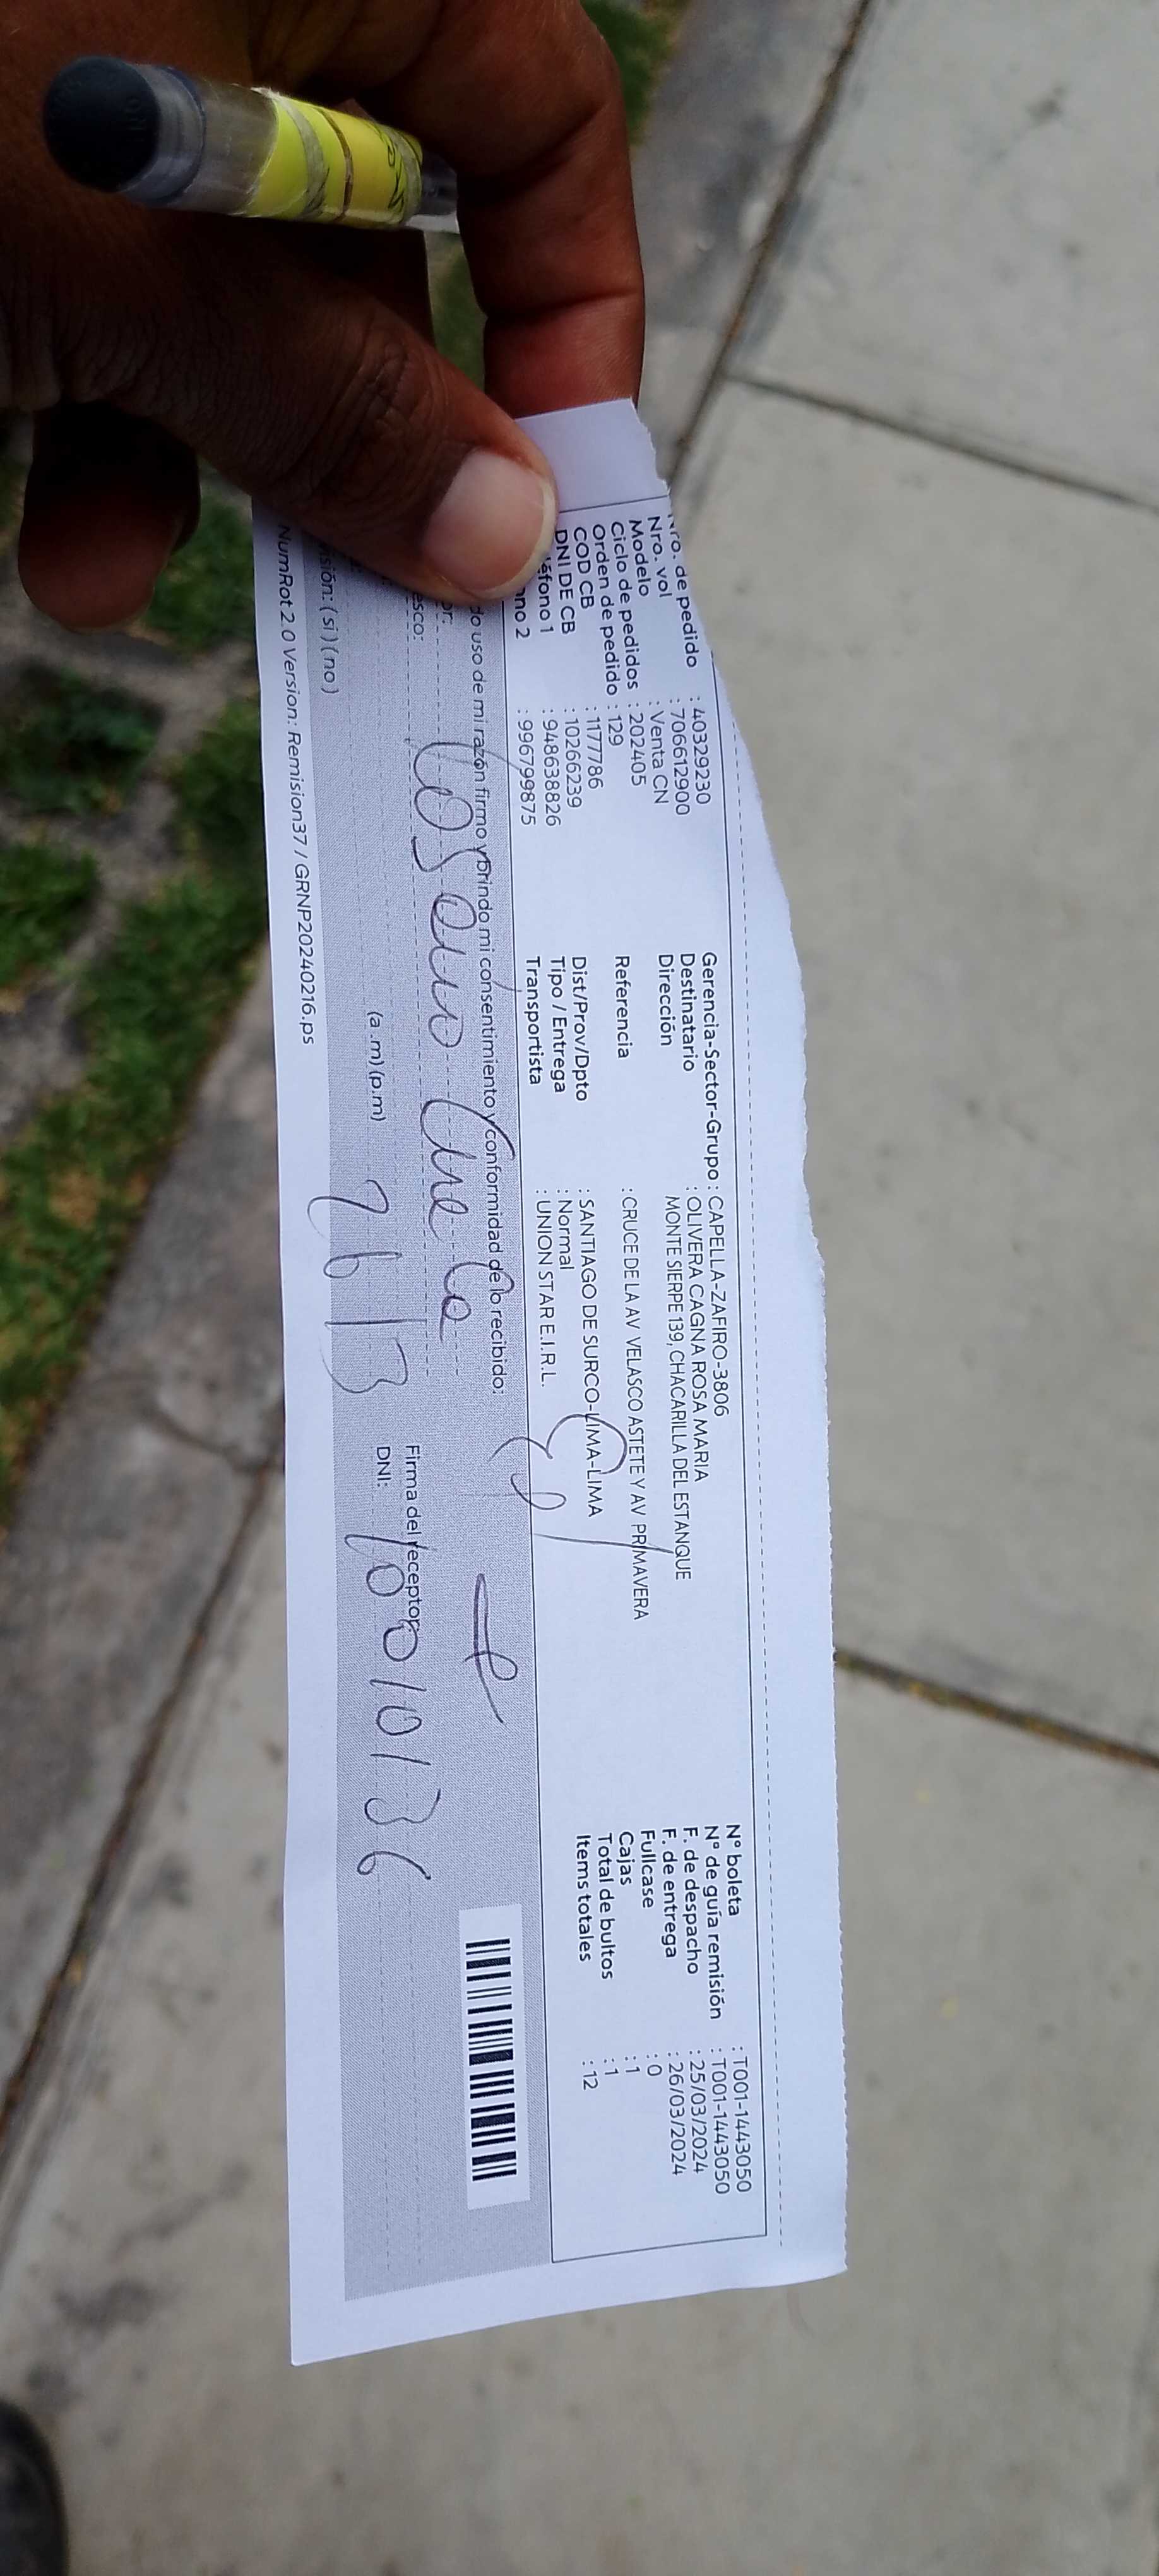 Nro. de pedido : 40329230
Nro. vol : 706612900
Modelo : Venta CN
Ciclo de pedidos : 202405
Orden de pedido : 129
COD CB : 1177786
DNI DE CB : 10266239
éfono 1 : 948638826
ono 2 : 996799875
Gerencia-Sector-Grupo : CAPELLA-ZAFIRO-3806
Destinatario : OLIVERA CAGNA ROSA MARIA
Dirección MONTE SIERPE 139, CHACARILLA DEL ESTANQUE
Referencia : CRUCE DE LA AV VELASCO ASTETE Y AV PRIMAVERA
Dist/Prov/Dpto : SANTIAGO DE SURCO-LIMA-LIMA
Tipo / Entrega : Normal
Transportista : UNION STAR E.I.R.L.
N° boleta : T001-1443050
N° de guía remisión : T001-1443050
F. de despacho : 25/03/2024
F. de entrega : 26/03/2024
Fullcase : 0
Cajas : 1
Total de bultos : 1
Items totales : 12
do uso de mi razón firmo y brindo mi consentimiento y conformidad de lo recibido:
or:
esco:
(a .m) (p.m) 26/3
Firma del receptor
DNI: 10010136
isión: ( si ) ( no )
NumRot 2.0 Version: Remision37 / GRNP20240216.ps